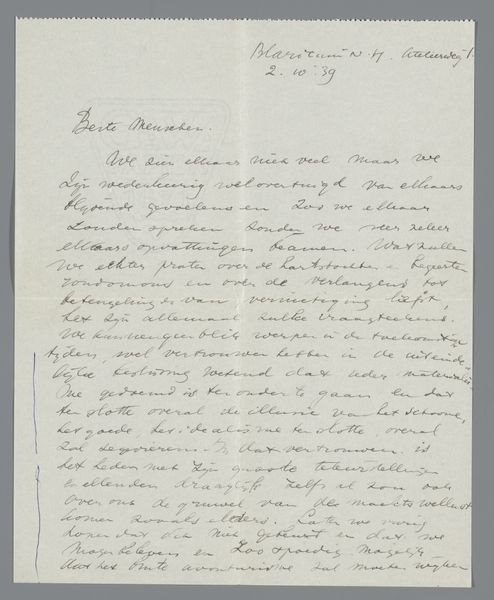 Blaricum N.H. Atelierweg 1.
2. 10. 39
Beste Menschen.
We zien elkaar niet veel maar we
zijn wederkeerig wel overtuigd van elkaars
blijvende gevoelens en zoo we elkaar
zouden spreken zouden we zeer zeker
elkaars opvattingen beamen. Wat zullen
we echter praten over de hartstochten en begeerten
rondomons en over de verlangens tot
van vernietiging
het zijn allemaal zulke vraagteekens.
We kunnen geen blik werpen in de toekomstige
tijden, wel vertrouwen hebben in de uiteinde-
lijke beslissing wetend dat ieder materialis-
me gedoemd is ten onder te gaan en dat
ten slotte overal de illusie van het schoone,
het goede, het idealisme ten slotte, overal
zal zegevieren. In dat vertrouwen is
het heden met zijn groote teleurstellingen
en ellenden draaglijk zelfs al zou ook
over ons de gruwel van de machtswellust
komen zooals elders. Laten we vurig
hopen dat dit niet gebeurt en dat we
en zoo spoedig mogelijk
dat het avonturisme zal moeten wijken